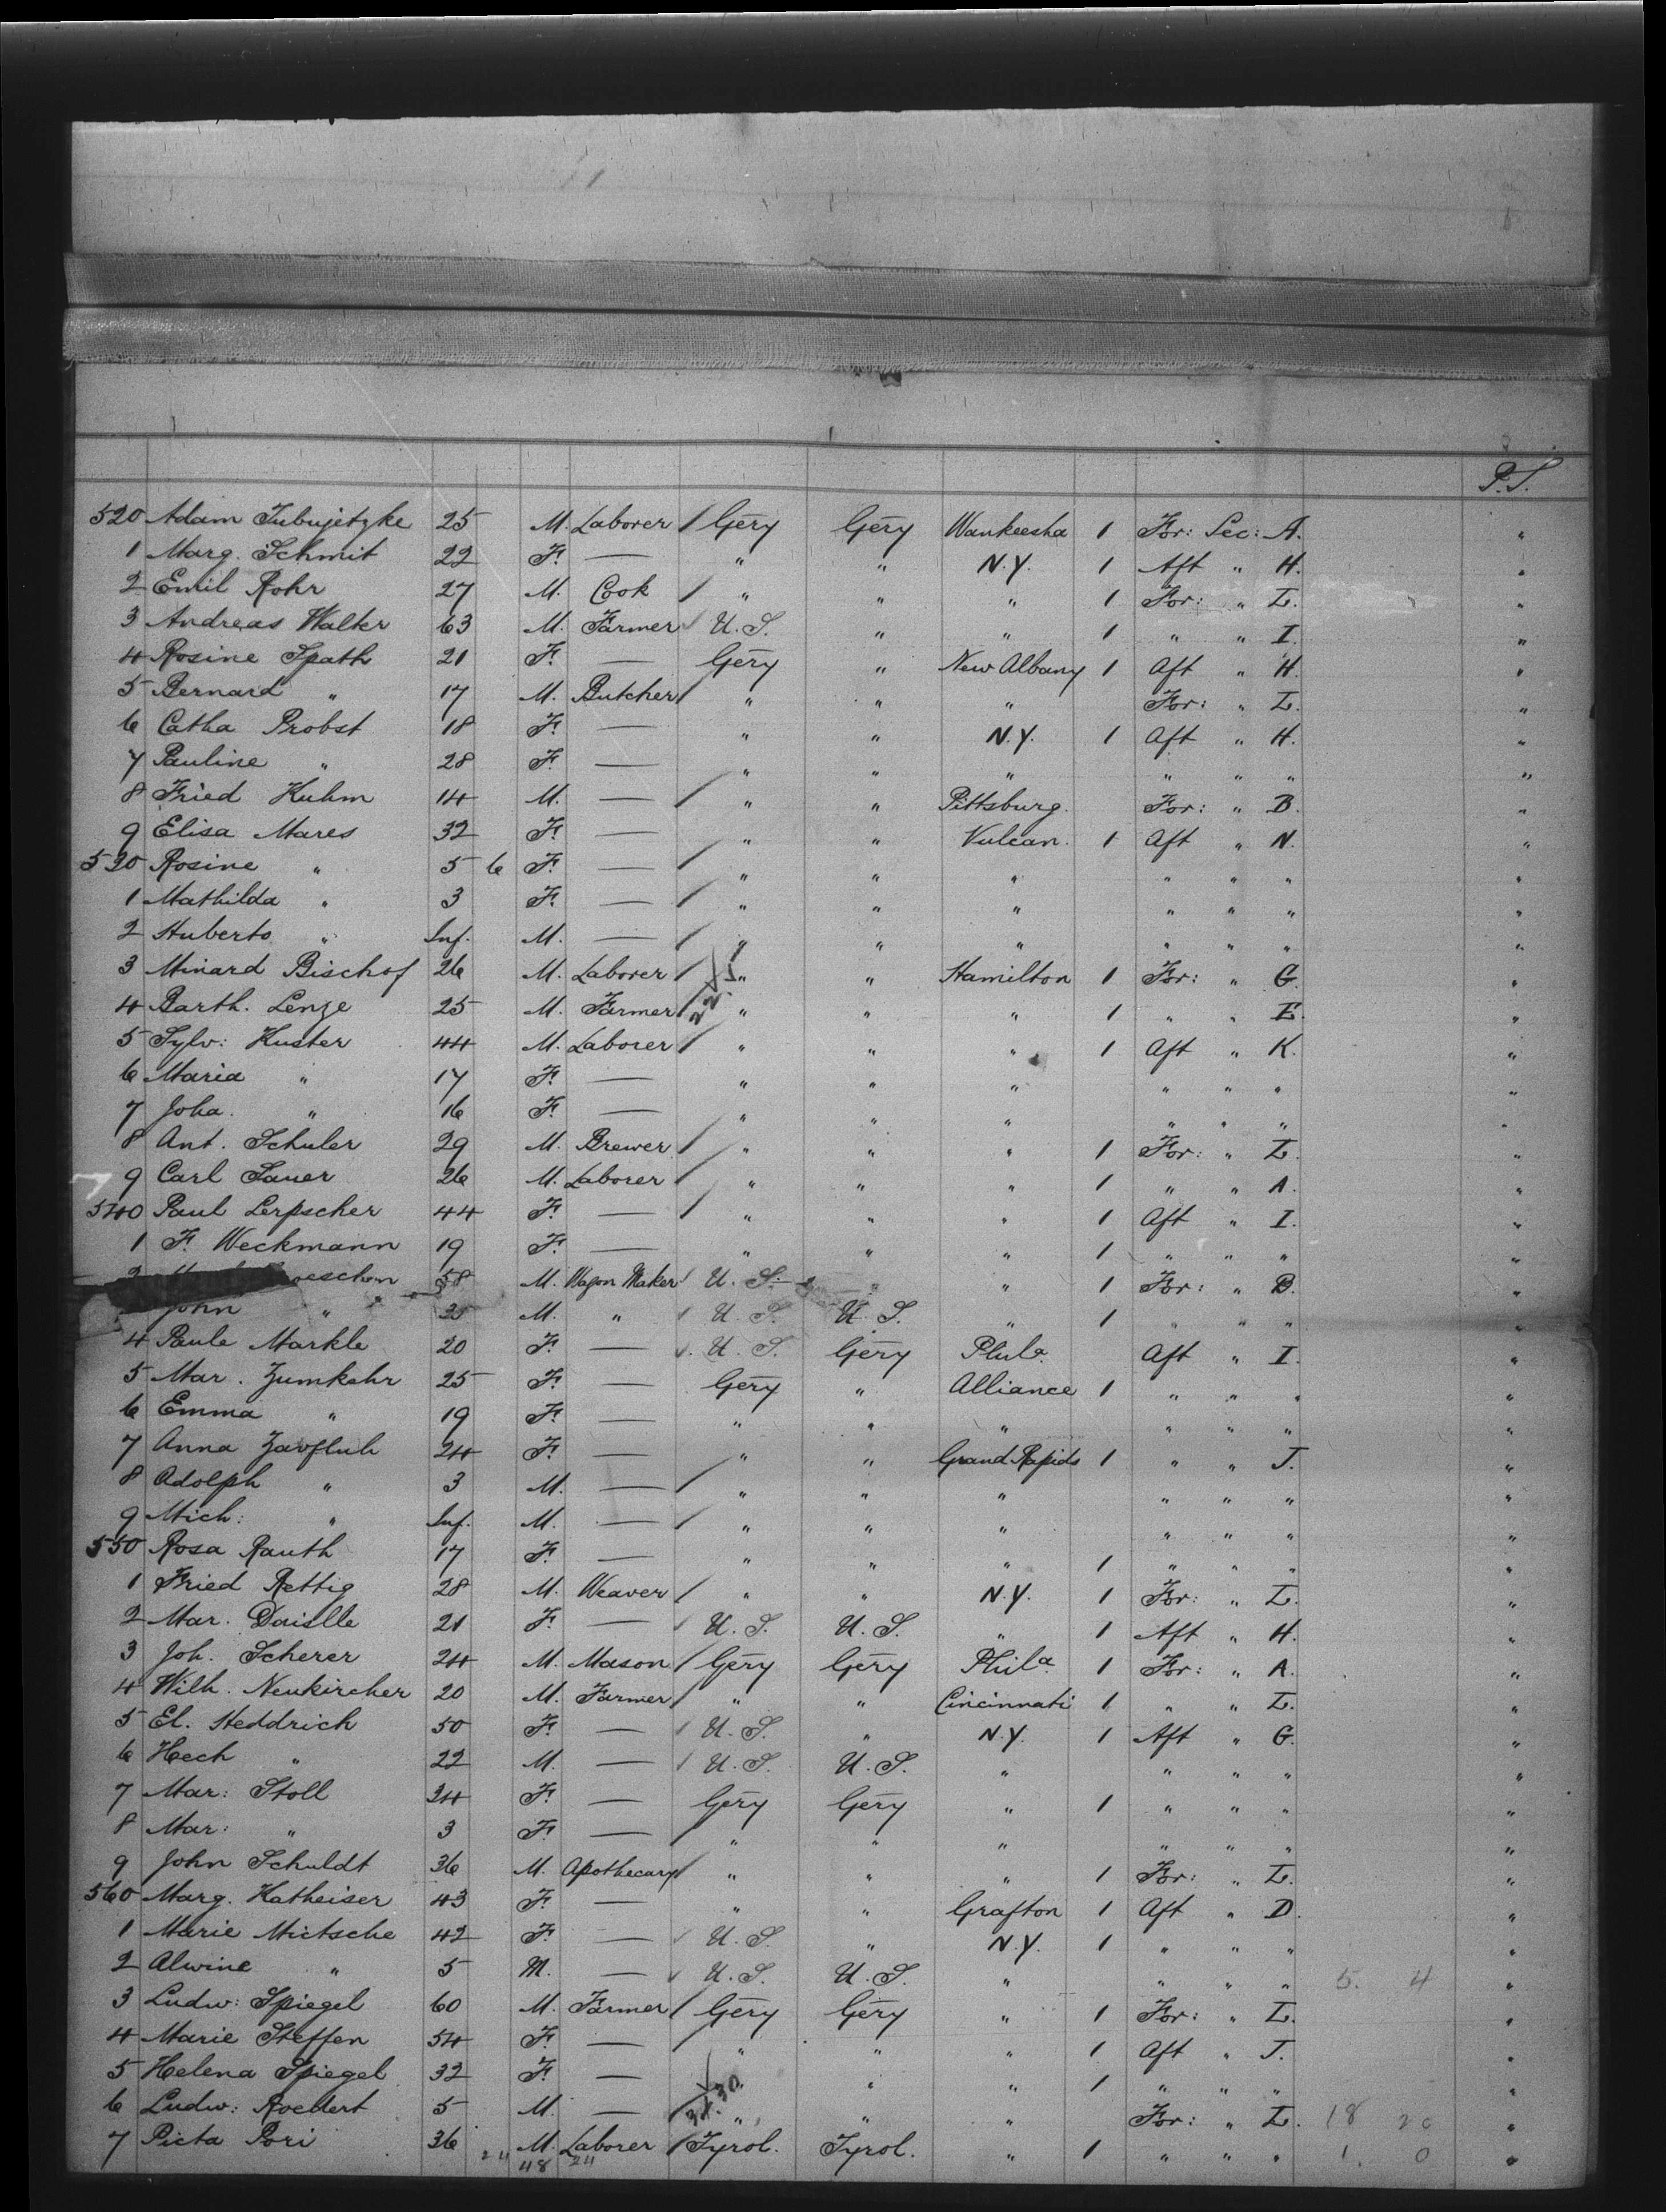 P.S.
520 Adam Tubujetzke 25 M. Laborer / Gēry Gēry Waukeesha 1 For: Sec: A. "
1 Marg. Schmit 22 F. — " " N.Y. 1 Aft " H. "
2 Emil Rohr 27 M. Cook / " " " 1 For: " L. "
3 Andreas Walter 63 M. Farmer / U.S. " " 1 " " I. "
4 Rosine Spath 21 F. — Gēry " New Albany 1 Aft " H. "
5 Bernard " 17 M. Butcher / " " " For: " L. "
6 Catha Probst 18 F. — " " N.Y. 1 Aft " H. "
7 Pauline " 28 F. — " " " " " " "
8 Fried Kuhm 14 M. — / " " Pittsburg. For: " B. "
9 Elisa Mares 32 F. — " " Vulcan. 1 Aft " N. "
530 Rosine " 5 6 F. — / " " " " " " "
1 Mathilda " 3 F. — / " " " " " " "
2 Huberto " Inf. M. — / " " " " " " "
3 Minard Bischof 26 M. Laborer / " " Hamilton 1 For: " G. "
4 Barth. Lenze 25 M. Farmer / " " " 1 " " E. "
5 Sylv: Kuster 44 M. Laborer / " " " 1 Aft " K. "
6 Maria " 17 F. — " " " " " " "
7 Joha. " 16 F. — " " " " " " "
8 Ant. Schuler 29 M. Brewer / " " " 1 For: " L. "
9 Carl Sauer 26 M. Laborer / " " " 1 " " A. "
540 Paul Lerpscher 44 F. — / " " " 1 Aft " I. "
1 F. Weckmann 19 F. — " " " 1 " " " "
2 58 M. Wagon Maker / U.S. " " 1 For: " B. "
John " M. " / U.S. U.S. " 1 " " " "
4 Paule Markle 20 F. — / U.S. Gēry Phila. Aft " I. "
5 Mar. Zumkehr 25 F. — Gēry " Alliance 1 " " " "
6 Emma " 19 F. — " " " " " " "
7 Anna Zavfluh 24 F. — " " Grand Rapids 1 " " J. "
8 Adolph " 3 M. — / " " " " " " "
9 Mich: " Inf. M. — / " " " " " " "
550 Rosa Rauth 17 F. — " " " 1 " " " "
1 Fried Rettig 28 M. Weaver / " " N.Y. 1 For: " L. "
2 Mar. Daislle 21 F. — / U.S. U.S. " 1 Aft " H. "
3 Joh. Scherer 24 M. Mason / Gēry Gēry Phila. 1 For: " A. "
4 Wilh. Neukircher 20 M. Farmer / " " Cincinnati 1 " " L. "
5 El. Heddrich 50 F. — / U.S. " N.Y. 1 Aft " G. "
6 Hech " 22 M. — / U.S. U.S. " " " " "
7 Mar: Stoll 34 F. — Gēry Gēry " 1 " " " "
8 Mar: " 3 F. — / " " " " " " "
9 John Schuldt 36 M. Apothecary / " " " 1 For: " L. "
560 Marg. Katheiser 43 F. — " " Grafton 1 Aft " D. "
1 Marie Mietsche 42 F. — / U.S. " N.Y. 1 " " " "
2 Alwine " 5 M. — / U.S. U.S. " " " " 5. 4 "
3 Ludw: Spiegel 60 M. Farmer / Gēry Gēry " 1 For: " L. "
4 Marie Steffen 54 F. — / " " " 1 Aft " J. "
5 Helena Spiegel 32 F. — " " " 1 " " " "
6 Ludw: Roedert 5 M. — / " " " For: " L. 18 20 "
7 Picta Pori 36 M. Laborer / Tyrol. Tyrol. " 1 " " " 1. 0 "
24 48 24